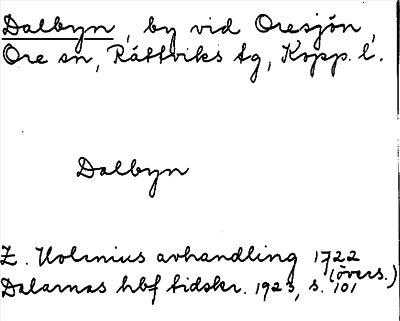 Dalbyn, by vid Oresjön,
Ore sn, Rättviks tg, Kopp. l.
Dalbyn
Z. Holenius avhandling 1722
(övers.)
Dalarnas hbf tidskr. 1923, s. 101